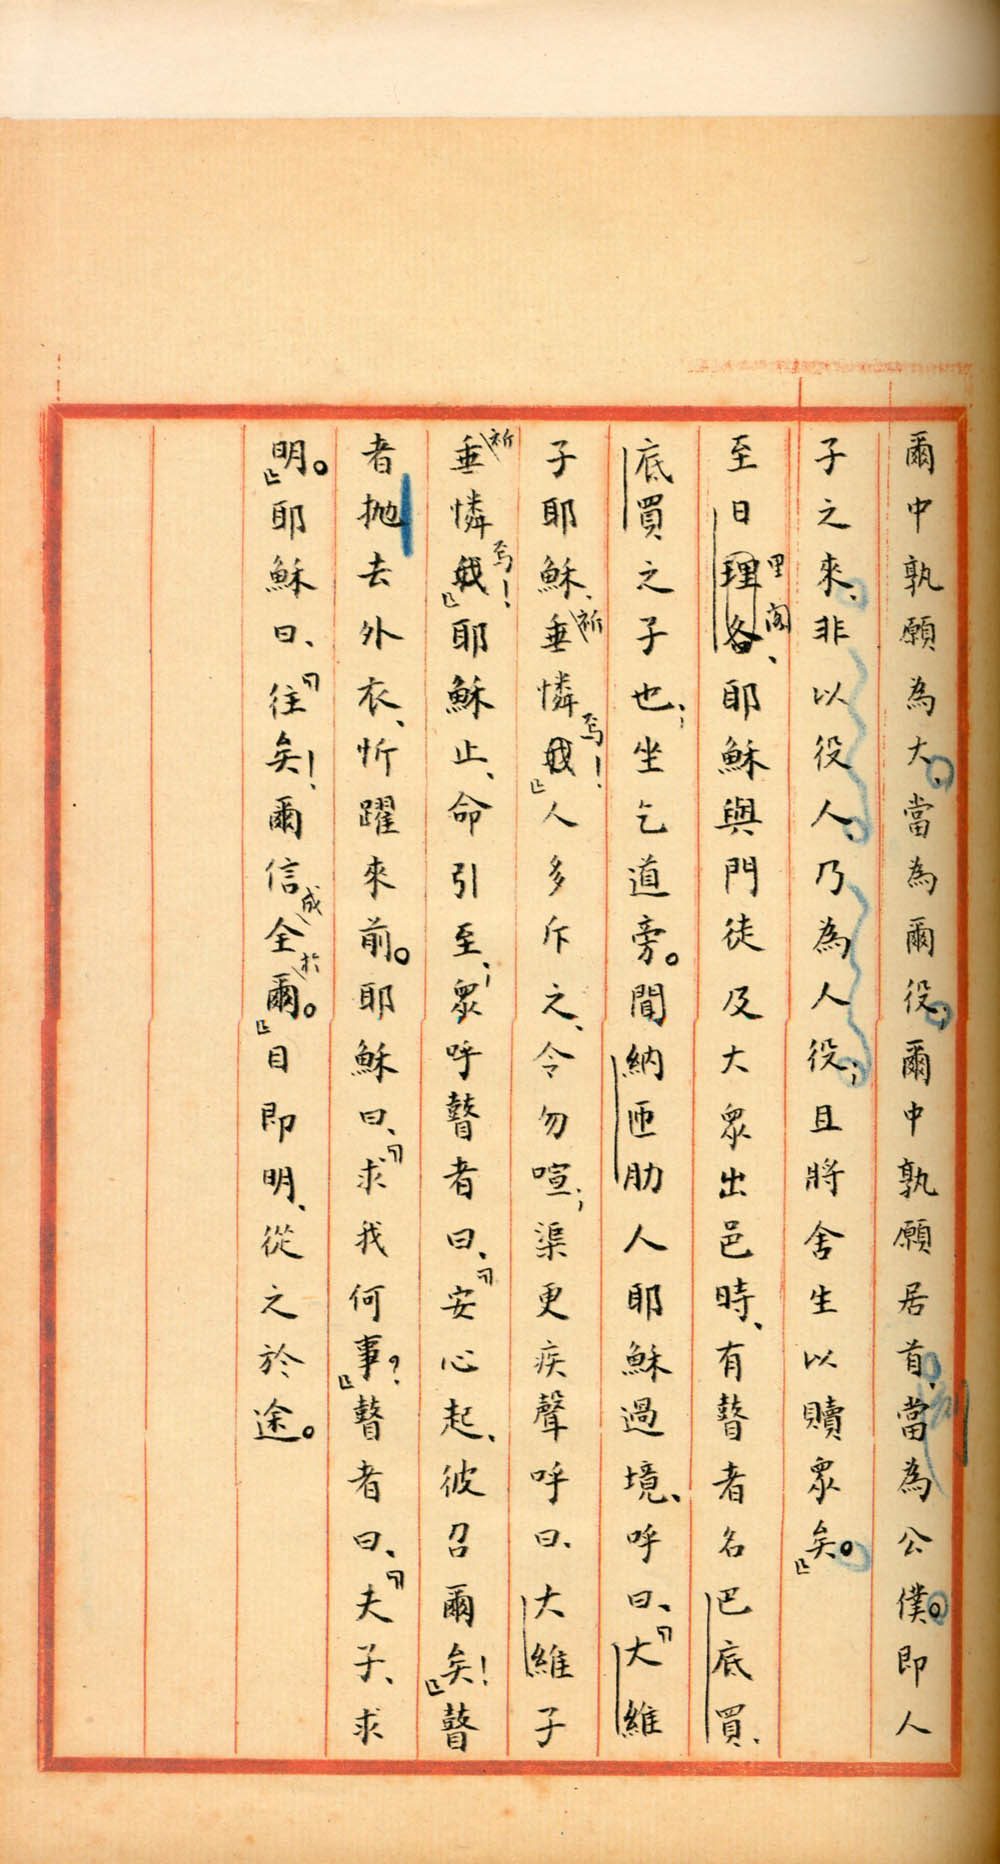 爾中孰願為大、當為爾役；爾中孰願居首、當為公僕。即人
子之來、非以役人、乃為人役；且將舍生以贖眾矣。』
至日理各里閣、耶穌與門徒及大眾出邑時、有瞽者名巴底買、
底買之子也；坐乞道旁。聞納匝肋人耶穌過境、呼曰、『大維
子耶穌、祈垂憐我焉！』人多斥之、令勿喧；渠更疾聲呼曰、大維子
祈垂憐我焉！』耶穌止、命引至；眾呼瞽者曰、『安心起、彼召爾矣！』瞽
者抛去外衣、忻躍來前。耶穌曰、『求我何事？』瞽者曰、『夫子、求
明。』耶穌曰、『往矣！爾信成全於爾。』目即明、從之於途。